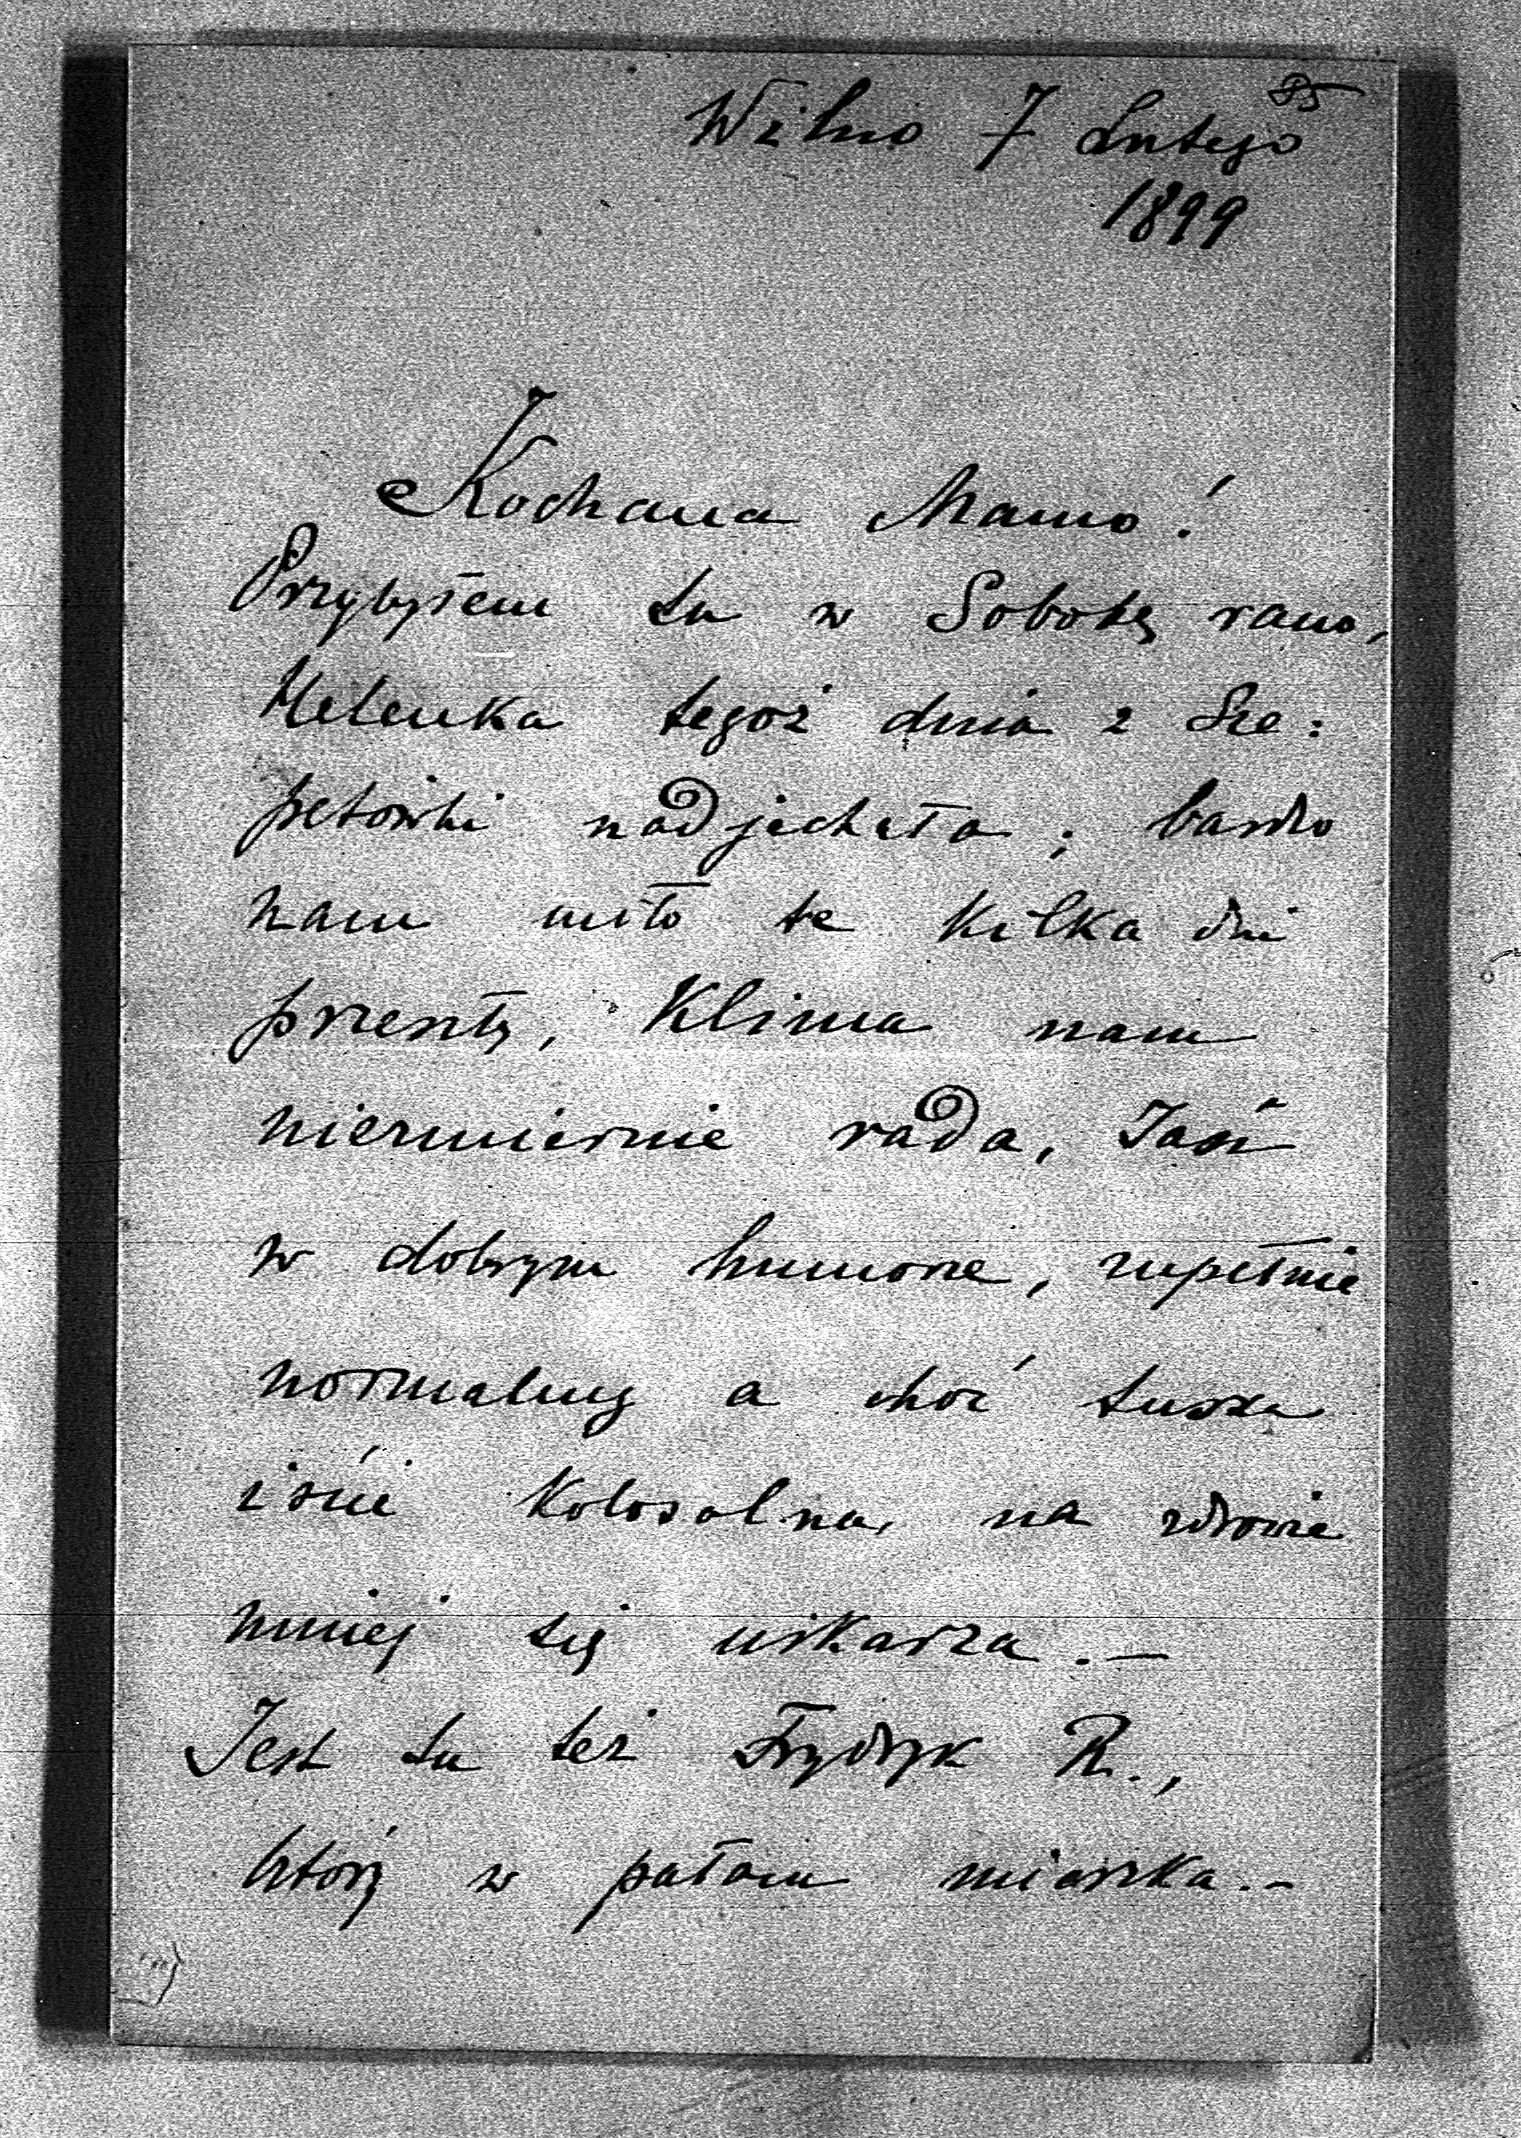 85
Wilno 7 Lutego
1899
Kochana Mamo!
Przybyłem tu w Sobotę rano,
Helenka tegoż dnia z Sze:
petówki nadjechała; bardzo
nam miło te kilka dni
przeszły, Klima nam
niezmiernie rada, Jaś
w dobrym humorze, zupełnie
normalny a choć tusza
iście kolosalna, na zdrowie
mniej się uskarza.—
Jest tu też Frydryk R.,
który w pałacu mieszka.—